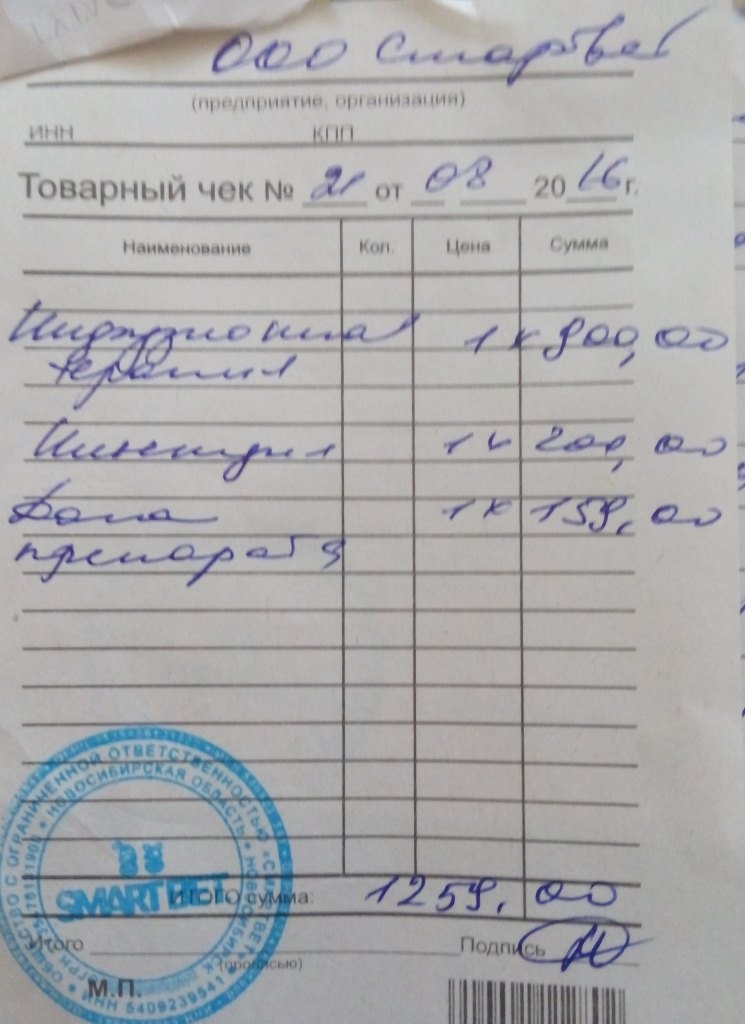 ООО Смартвет
(предприятие, организация)
ИНН КПП
Товарный чек № 21 от 08 2016 г.
Наименование Кол. Цена Сумма
Инфузионная 1 х 900,00
терапия
Инъекция 1 х 200,00
Доза 1 х 159,00
препарата
ИТОГО сумма: 1259,00
Итого Подпись
(прописью)
М.П.
ОБЩЕСТВО С ОГРАНИЧЕННОЙ ОТВЕТСТВЕННОСТЬЮ «СМАРТВЕТ»
НОВОСИБИРСКАЯ ОБЛАСТЬ • НОВОСИБИРСК
ИНН 5409239541
SMART ВЕТ